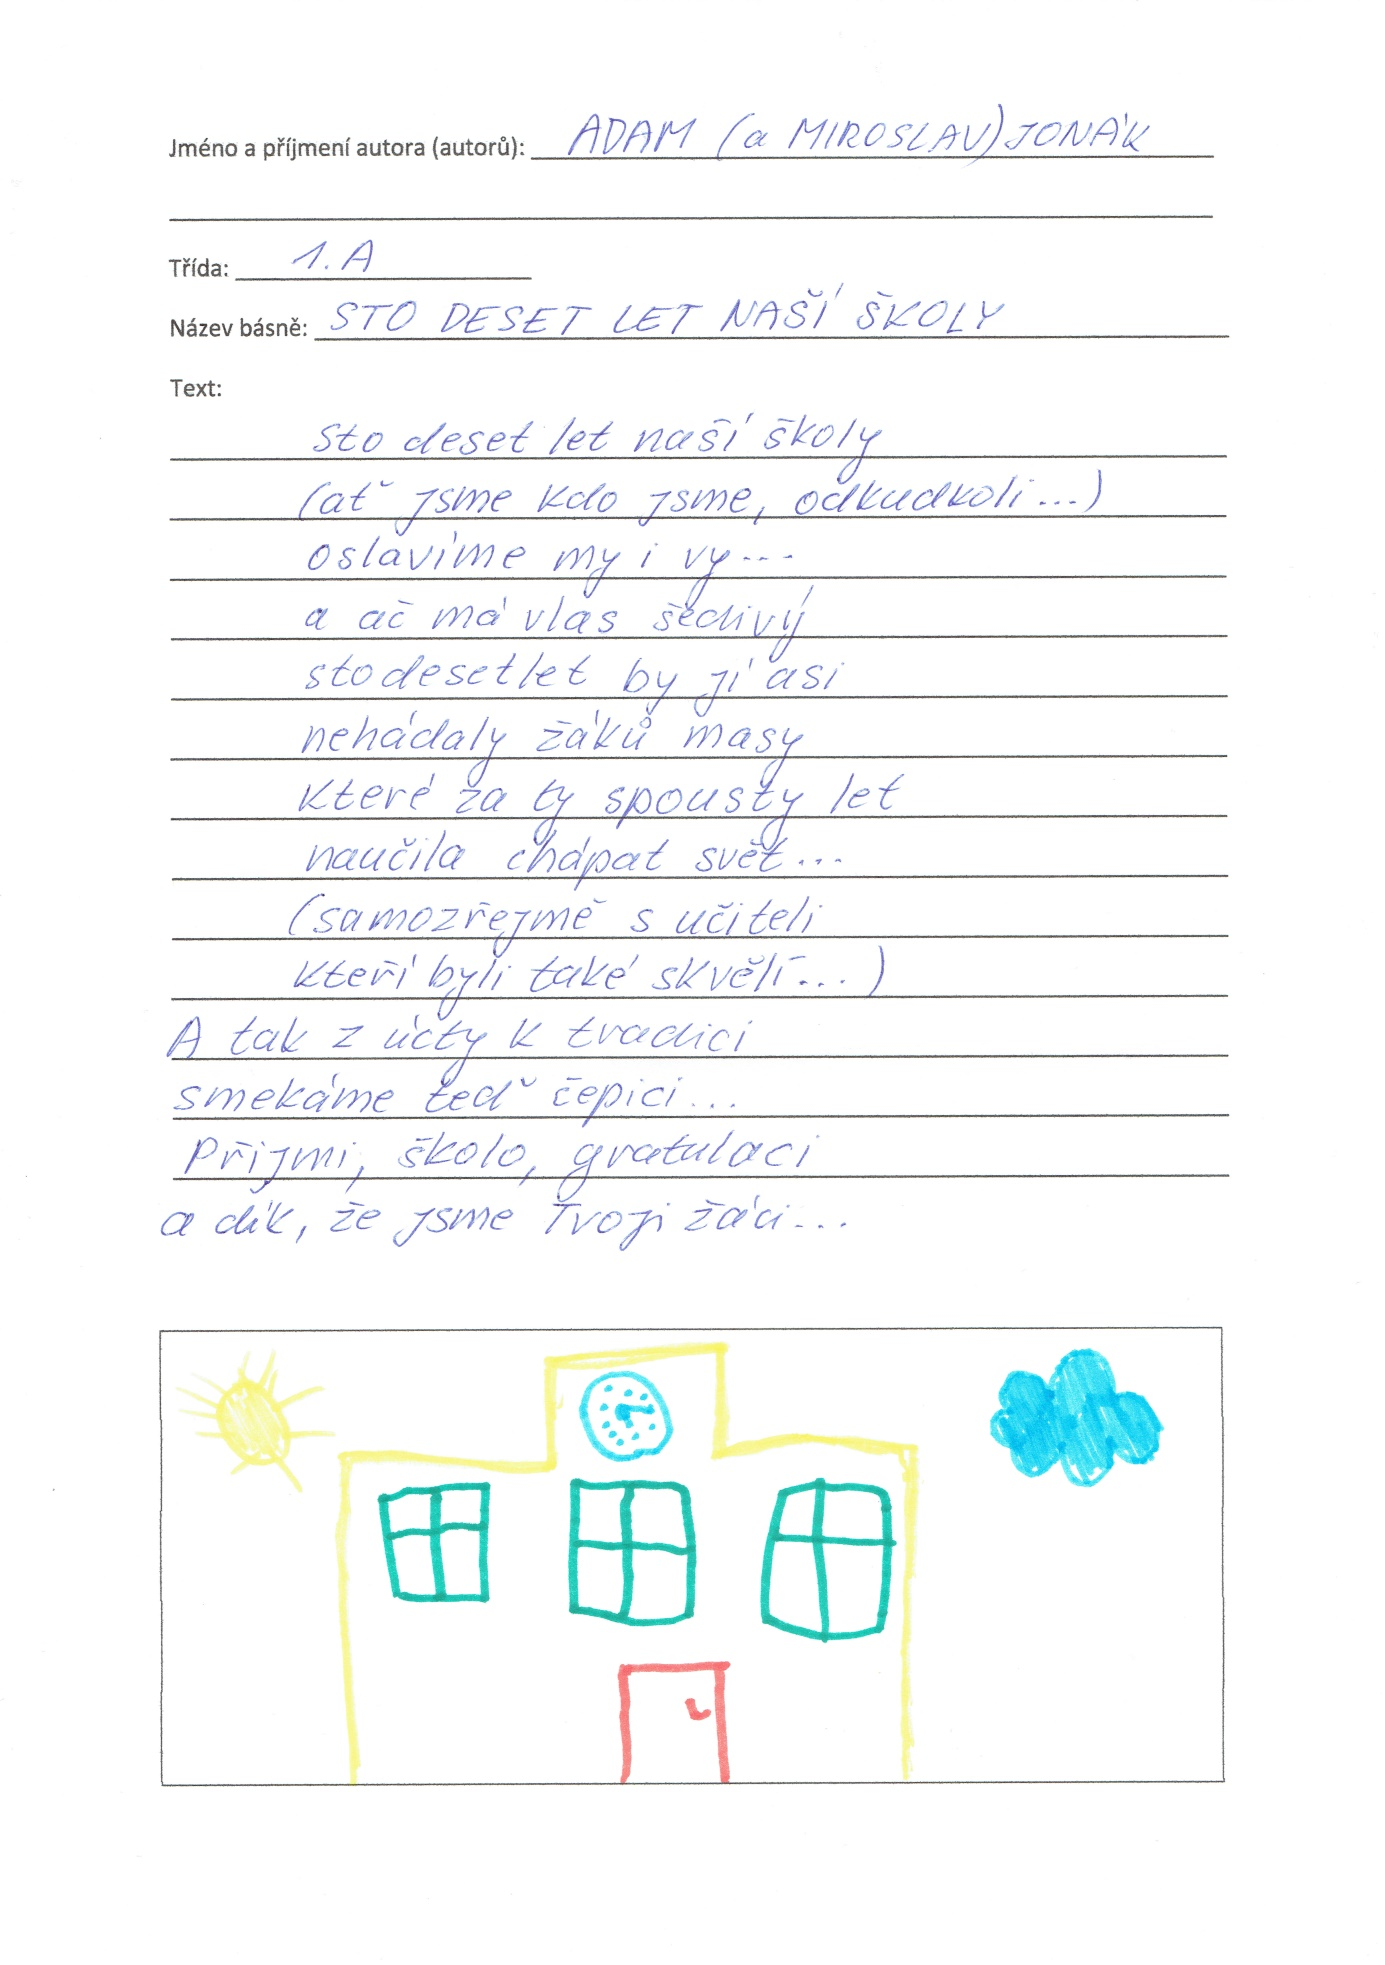 Jméno a příjmení autora (autorů): ADAM (a MIROSLAV) JONÁK
Třída: 1.A
Název básně: STO DESET LET NAŠÍ ŠKOLY
Text:
Sto deset let naší školy
(ať jsme kdo jsme, odkudkoli...)
oslavíme my i vy...
a ač má vlas šedivý
stodesetlet by jí asi
nehádaly žáků masy
které za ty spousty let
naučila chápat svět...
(samozřejmě s učiteli
kteří byli také skvělí...)
A tak z úcty k tradici
smekáme teď čepici...
Přijmi, školo, gratulaci
a dík, že jsme Tvoji žáci...